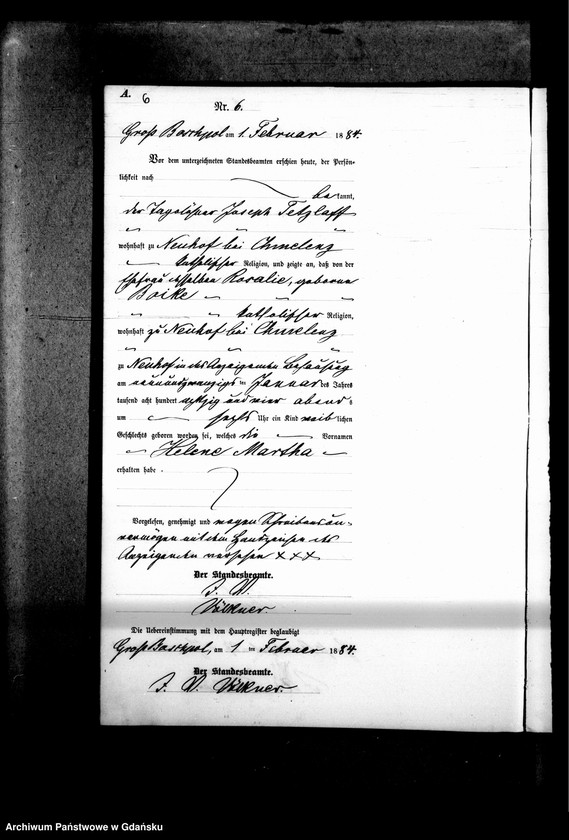 A. 6
Nr. 6.
Groß Boschpol am 1. Februar 1884.
Vor dem unterzeichneten Standesbeamten erschien heute, der Persön-
lichkeit nach
bekannt,
der Tagelöhner Joseph Tetzlaff
wohnhaft zu Neuhof bei Chmelenz
katholischer Religion, und zeigte an, daß von der
Ehefrau desselben Rosalie, geborene
Boike
katholischer Religion,
wohnhaft zu Neuhof bei Chmelenz
zu Neuhof in des Anzeigenden Behausung
am neunundzwanzigsten Januar des Jahres
tausend acht hundert achtzig und vier abends
um sechs Uhr ein Kind weiblichen
Geschlechts geboren worden sei, welches die Vornamen
Helene Martha
erhalten habe.
Vorgelesen, genehmigt und wegen Schreibensun-
vermögen mit dem Handzeichen des
Anzeigenden versehen XXX
Der Standesbeamte.
J. V.
Völkner.
Die Uebereinstimmung mit dem Hauptregister beglaubigt
Groß Boschpol, am 1 ten Februar 1884.
Der Standesbeamte.
J. V. Völkner.
Archiwum Państwowe w Gdańsku